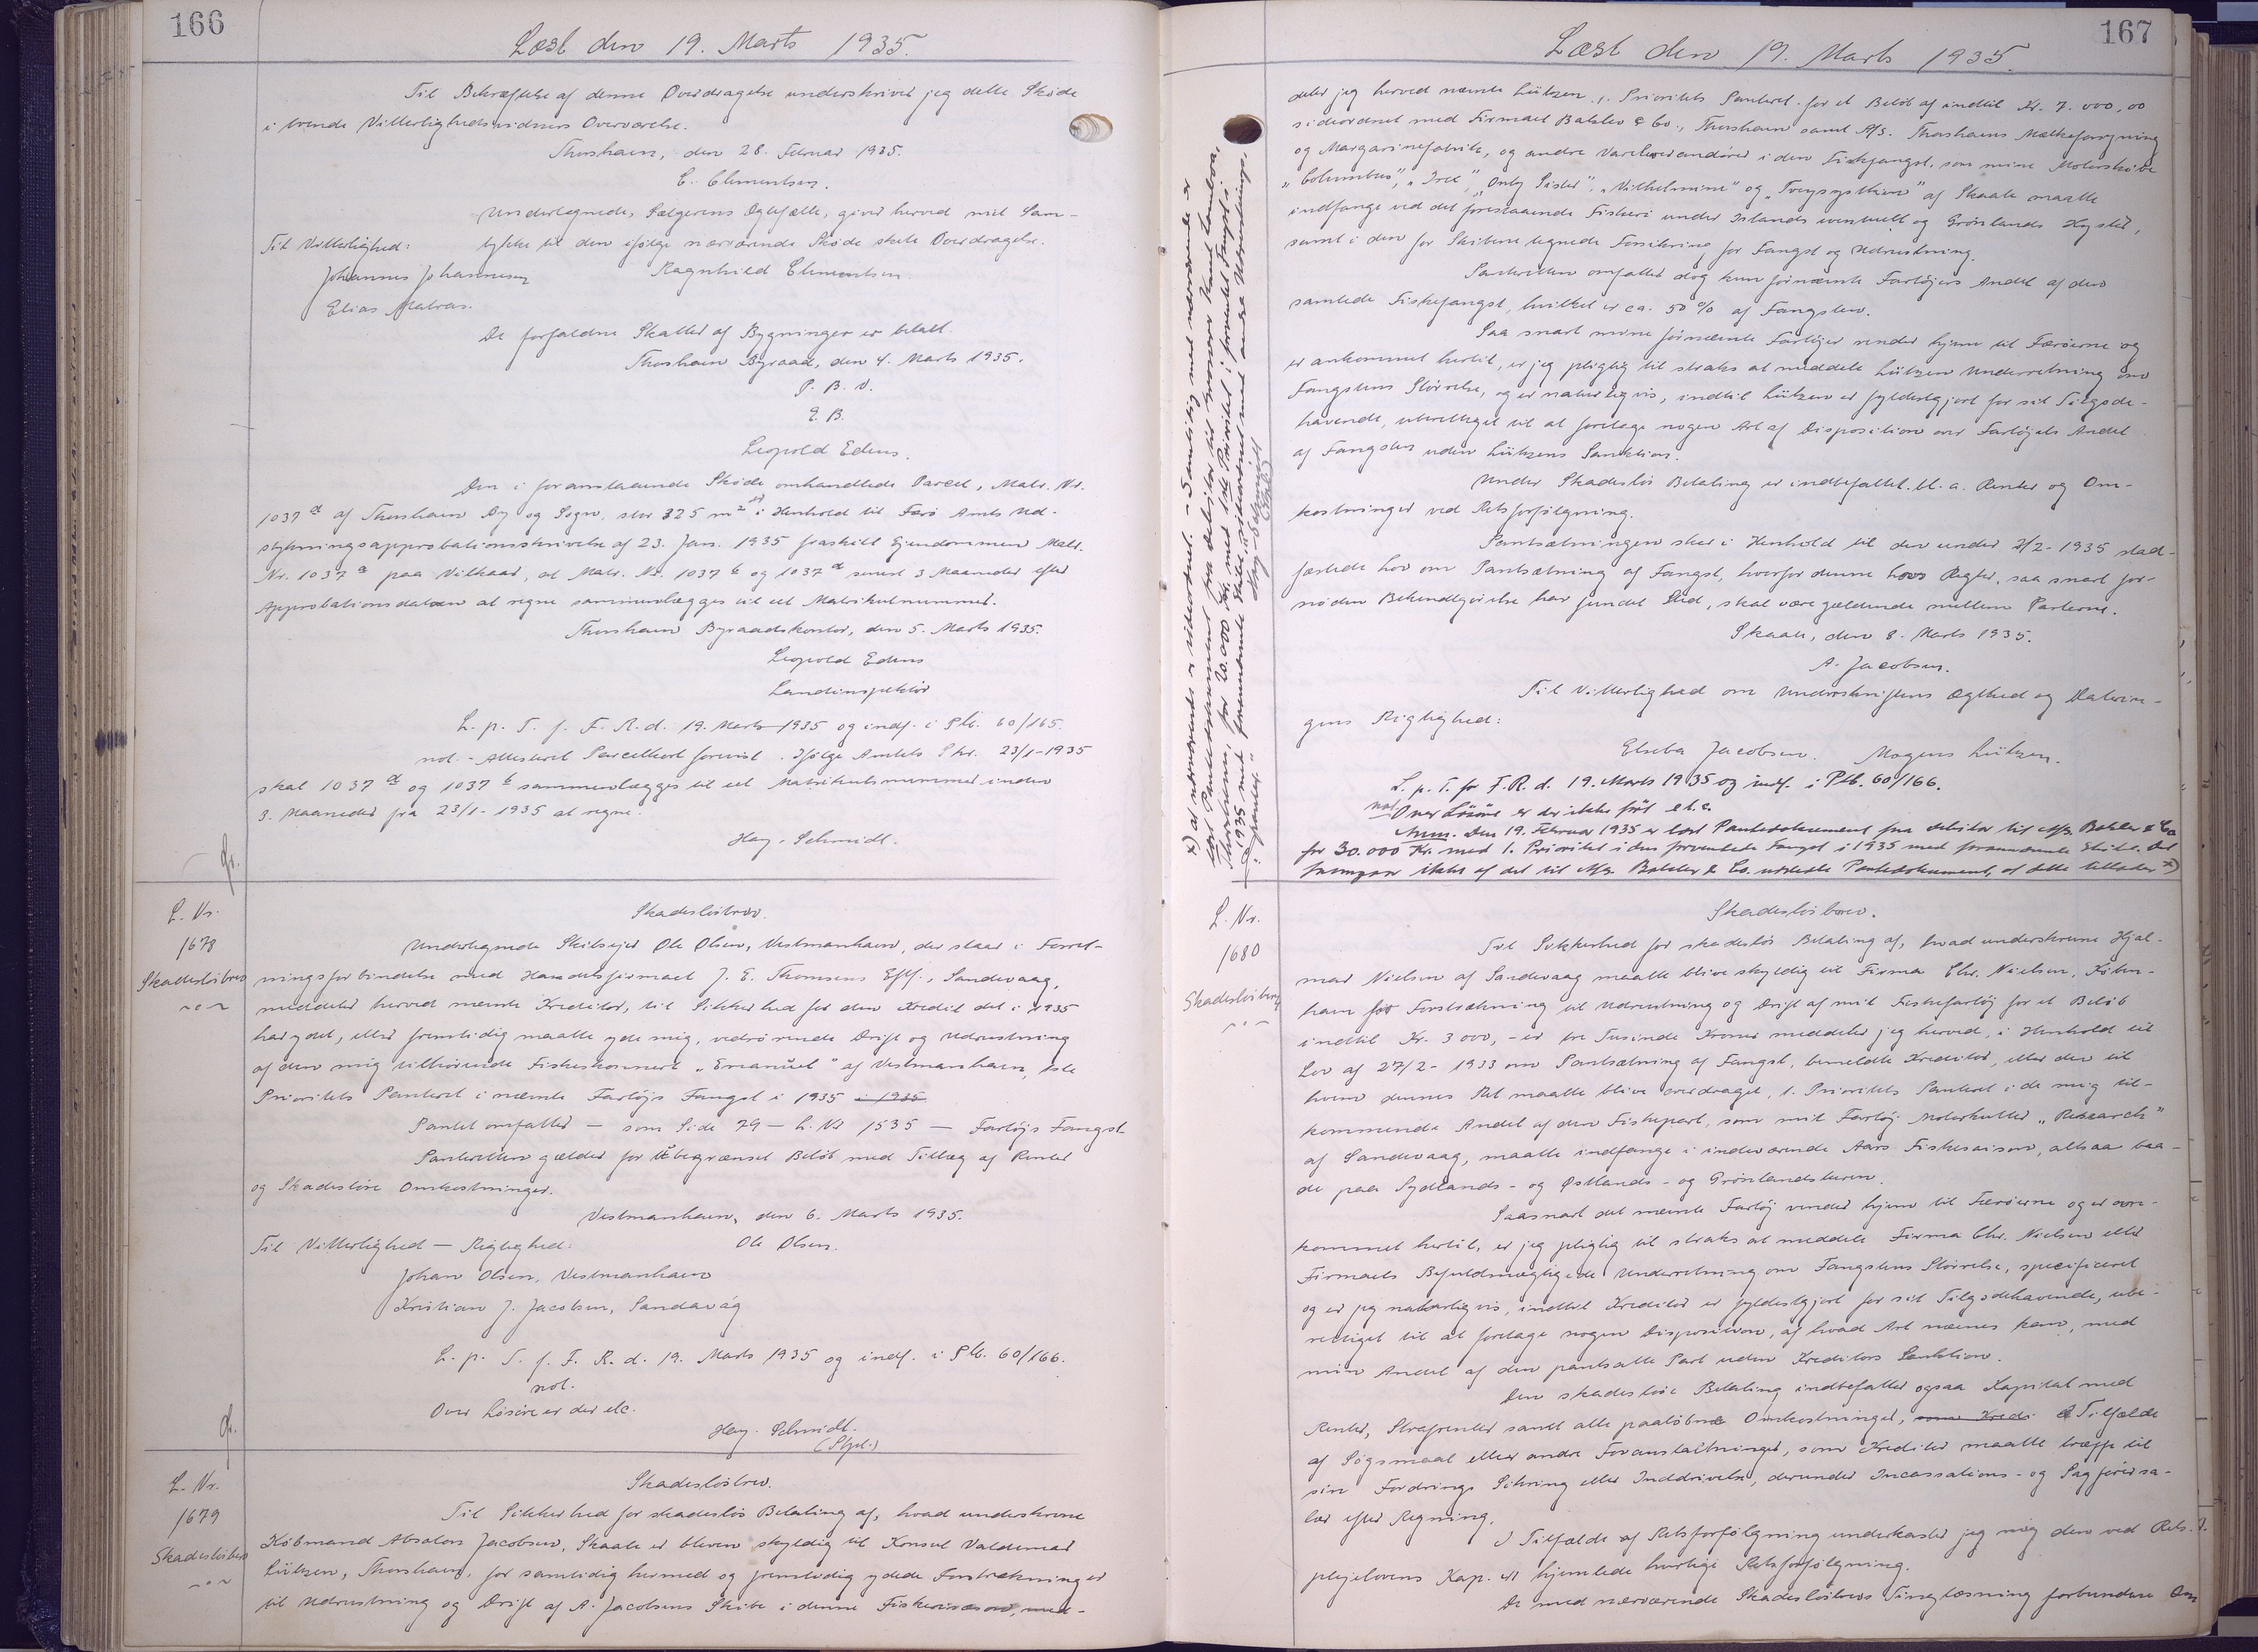 166
Læst den 19. Marts 1935.
Til Bekræftelse af denne Overdragelse underskriver jeg dette Skøde
i tvende Vitterlighedsvidners Overværelse.
Thorshavn, den 28. Februar 1935.
C. Clementsen.
Undertegnede, Sælgerens Ægtefælle, giver herved mit Sam-
Til Vitterlighed: tykke til den ifølge nærværende Skøde skete Overdragelse.
Johannes Johannesen Ragnhild Clementsen.
Elias Matras.
De forfaldne Skatter af Bygninger er betalt.
Thorshavn Byraad, den 4. Marts 1935.
P. B. V.
E. B.
Leopold Edens.
Den i foranstaaende Skøde omhandlede Parcel, Matr. Nr.
1037 d af Thorshavn By og Sogn, stor 325 m² er i Henhold til Færø Amts Ud-
stykningsapprobationsskrivelse af 23. Jan. 1935 fraskilt Ejendommen Matr.
Nr. 1037 a paa Vilkaar, at Matr. Nr. 1037 b og 1037 d senest 3 Maaneder efter
Approbationsdatoen at regne sammenlægges til eet Matrikulnummer.
Thorshavn Byraadskontor, den 5. Marts 1935.
Leopold Edens
Landinspektør
L. p. T. f. F. R. d. 19. Marts 1935 og indf. i Ptb. 60/165.
not. - Attesteret Parcelkort forevist. Ifølge Amtets Skr. 23/1-1935
skal 1037 d og 1037 b sammenlægges til eet Matrikulsnummer inden
3. Maaneder fra 23/1-1935 at regne.
Hag. Schmidt.
L. Nr.
1678
Skadesløsbrev
Skadesløsbrev.
Undertegnede Skibsejer Ole Olsen, Vestmanhavn, der staar i Forret-
ningsforbindelse med Handelsfirmaet J. E. Thomsens Eftf., Sandevaag,
meddeler herved nævnte Kreditor, til Sikkerhed for den Kredit det i 1935
har ydet, eller fremtidig maatte yde mig, vedrørende Drift og Udrustning
af den mig tilhørende Fiskeskonnert "Emanuel" af Vestmanhavn, 1ste
Prioritets Panteret i nævnte Fartøjs Fangst i 1935 i 1935
Pantet omfatter — som Side 79 — L. Nr 1535 — Fartøjs Fangst
Panteretten gælder for ubegrænset Beløb med Tillæg af Renter
og Skadesløse Omkostninger.
Vestmanhavn, den 6. Marts 1935.
Til Vitterlighed — Rigtighed: Ole Olsen.
Johan Olsen, Vestmanhavn
Kristian J. Jacobsen, Sandavág
L. p. T. f. F. R. d. 19. Marts 1935 og indf. i Ptb. 60/166.
not.
Over Løsøre er der etc.
Hag. Schmidt.
L. Nr.
1679
Skadesløsbrev
Skadesløsbrev.
Til Sikkerhed for skadesløs Betaling af, hvad underskrevne
Købmand Absalon Jacobsen, Skaale er bleven skyldig til Konsul Valdemar
Lützen, Thorshavn, for samtidig hermed og fremtidig ydede Forstrækninger
til Udrustning og Drift af A. Jacobsens Skibe i denne Fiskerisæson, med-
167
Læst den 19. Marts 1935.
deler jeg herved nævnte Lützen 1. Prioritets Panteret for et Beløb af indtil Kr. 7.000,00
sideordnet med Firmaet Balslev & Co., Thorshavn samt A/S. Thorshavns Mælkeforsyning
og Margarinefabrik, og andre Vareleverandører i den Fiskefangst, som mine Motorskibe
"Columbus", "Only Sister", "Vilhelmine" og af Skaale maatte
indfange ved det forestaaende Fiskeri under Islands eventuelt og Grønlands Kyster,
samt i den for Skibene tegnede Forsikring for Fangst og Udrustning.
Panteretten omfatter dog kun førnævnte Fartøjers Andel af den
samlede Fiskefangst, hvilket er ca. 50 % af Fangsten.
Saa snart mine førnævnte Fartøjer vender hjem til Færøerne og
er ankommet hertil, er jeg pligtig til straks at meddele Lützen Underretning om
Fangstens Størrelse, og er naturligvis, indtil Lützen er fyldestgjort for sit Tilgode-
havende, uberettiget til at foretage nogen Art af Disposition over Fartøjets Andel
af Fangsten uden Lützens Sanktion.
Under Skadesløs Betaling er indbefattet bl. a. Renter og Om-
kostninger ved Retsforfølgning.
Pantsætningen sker i Henhold til den under 2/2-1935 stad-
fæstede Lov om Pantsætning af Fangst, hvorfor denne Lovs Regler, saa snart for-
nøden Bekendtgørelse har fundet Sted, skal være gældende mellem Parterne.
Skaale, den 8. Marts 1935.
A. Jacobsen.
Til Vitterlighed om Underskriftens Ægthed og Daterin-
gens Rigtighed:
Elseba Jacobsen. Mogens Lützen.
L. p. T. for F. R. d. 19. Marts 1935 og indf. i Ptb. 60/166.
not. Over Løsøre er der ikke før etc.
Anm. Den 19. Februar 1935 er læst Pantedokument fra debitor til Balslev & Co
for 30.000 Kr. med 1. Prioritet i den forventede Fangst i 1935 med forannævnte Skibe. Det
fremgaar ikke af det til Balslev & Co. udstedte Pantedokument, at dette tillader x)
x) at nærværende er sideordnet. - Samtidig med nærværende er
læst Pantedokument fra Debitor til Grosserer Knud
Thorshavn, for 20.000 Kr. med 1ste Prioritet i forventet Fangst i
1935 med forannævnte Skibe, sideordnet med andre Udrustnings-
panter.
Hag. Schmidt
L. Nr.
1680
Skadesløsbrev
Skadesløsbrev.
Til Sikkerhed for skadesløs Betaling af, hvad underskrevne Hjal-
mar Nielsen af Sandevaag maatte blive skyldig til Firma Chr. Nielsen, Købn-
havn for Forstrækning til Udrustning og Drift af mit Fiskefartøj for et Beløb
indtil Kr. 3000,- er tre Tusinde Kroner meddeler jeg herved, i Henhold til
Lov af 27/2-1933 om Pantsætning af Fangst, bemeldte Kreditor, eller den til
hvem dennes Ret maatte blive overdraget, 1. Prioritets Panteret i de mig til-
kommende Andel af den Fiskepart, som mit Fartøj Motorkutter "Research"
af Sandevaag, maatte indfange i indeværende Aars Fiskesaison, altsaa baa-
de paa Sydlands- og Østlands- og Grønlandsturen.
Saasnart det nævnte Fartøj vender hjem til Færøerne og er an-
kommet hertil, er jeg pligtig til straks at meddele Firma Chr. Nielsen eller
Firmaets Befuldmægtigede Underretning om Fangstens Størrelse, specificeret
og er jeg naturligvis, indtil Kreditor er fyldestgjort for sit Tilgodehavende, ube-
rettiget til at foretage nogen Disposition, af hvad Art nævnes kan, med
min Andel af den pantsatte Part uden Kreditors Sanktion.
Den skadesløse Betaling indbefatter ogsaa Kapital med
Renter, Strafrenter samt alle paaløbne Omkostninger, som Kredi I Tilfælde
af Søgsmaal eller andre Foranstaltninger, som Kreditor maatte træffe til
sin Fordrings Sikring eller Inddrivelse, derunder Incassations- og Sagførersa-
lær efter Regning.
I Tilfælde af Retsforfølgning underkaster jeg mig den ved Rets-
plejelovens Kap. hjemlede hurtige Retsforfølgning.
De med nærværende Skadesløsbrevs Tinglæsning forbundne Om